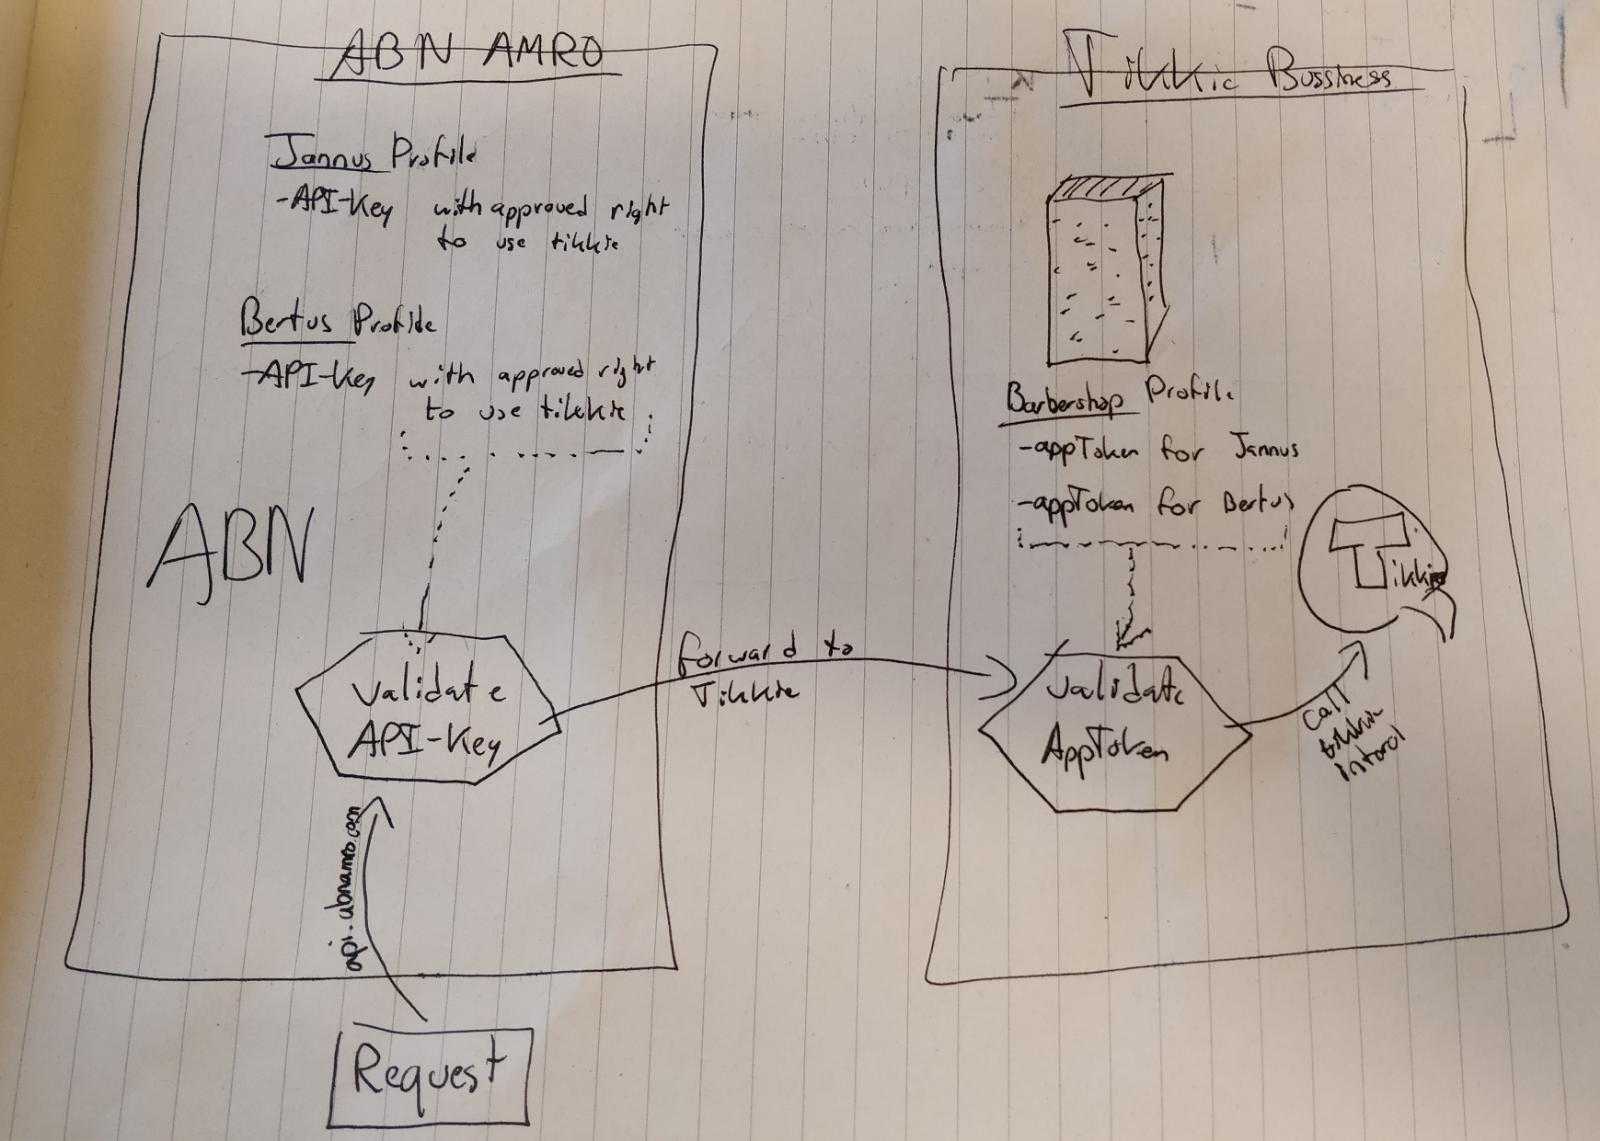 ABN AMRO
Jannus Profile
-API-Key with approved right
to use tikkie
Bertus Profile
-API-Key with approved right
to use tikkie
ABN
Validate
API-Key
api.abnamro.com
Request
forward to
Tikkie
Tikkie Bussiness
Barbershop Profile
-appToken for Jannus
-appToken for Bertus
Validate
AppToken
Call
tikkie
Tikkie